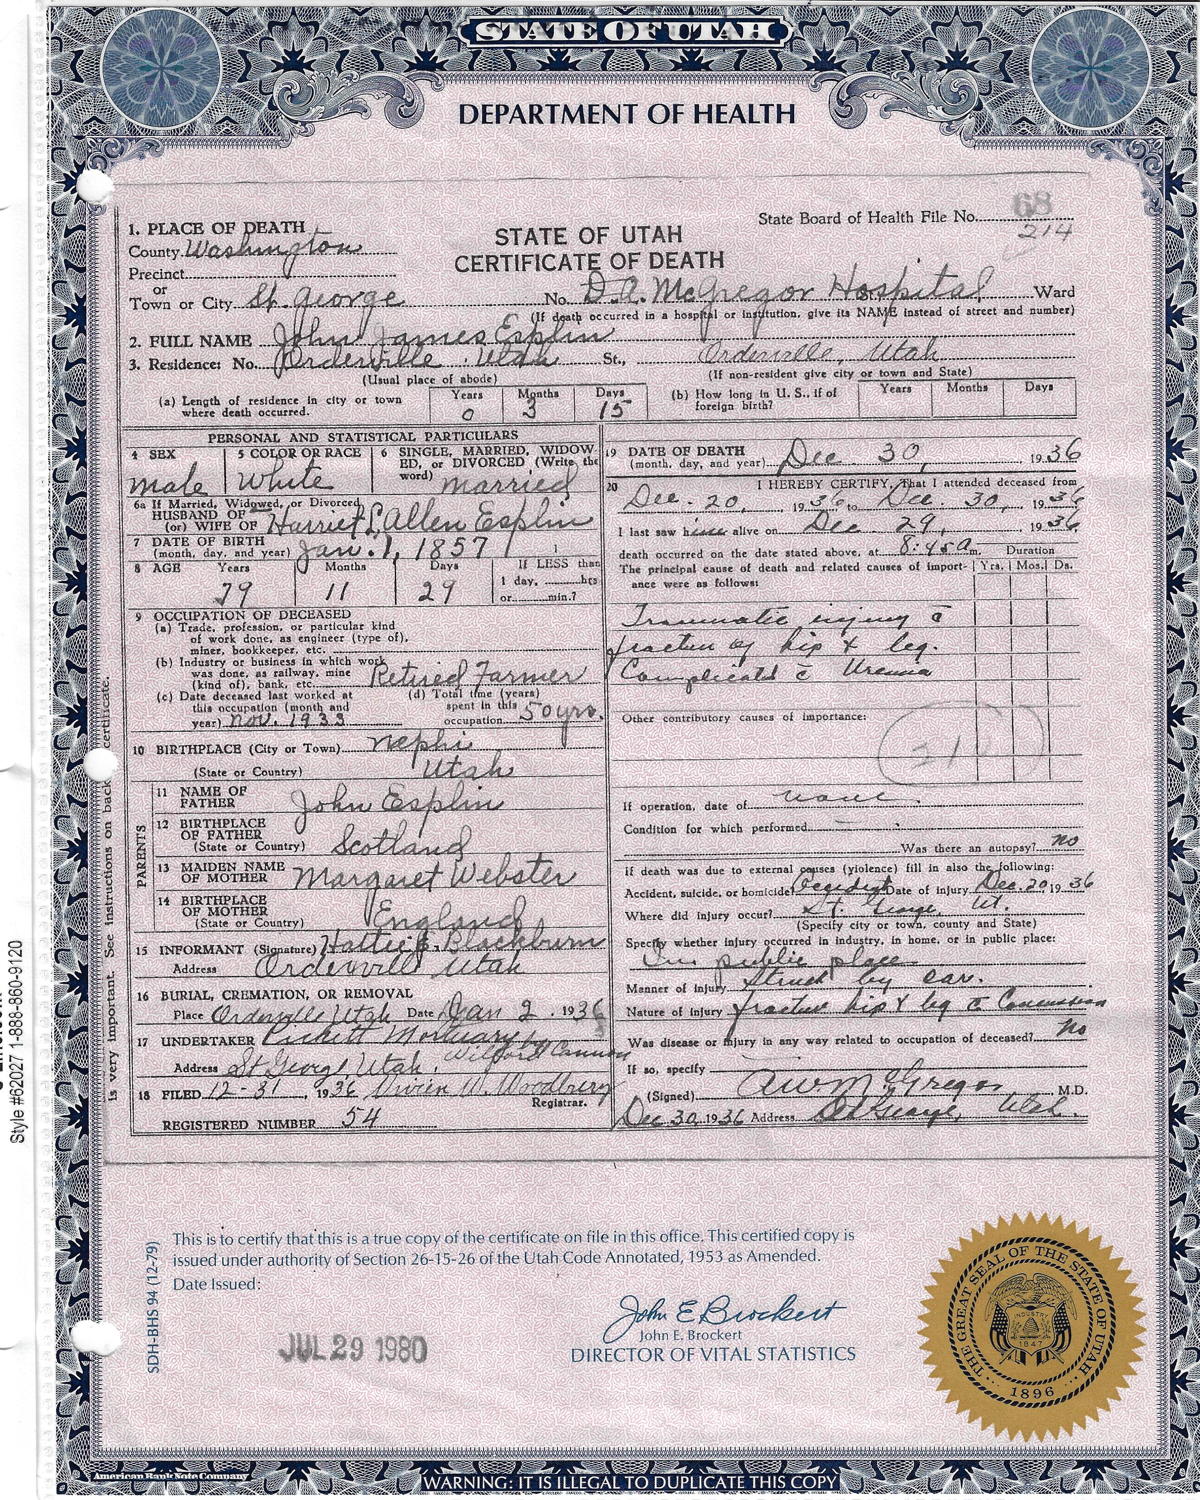 STATE OF UTAH
DEPARTMENT OF HEALTH
State Board of Health File No. 68
214
STATE OF UTAH
CERTIFICATE OF DEATH
1. PLACE OF DEATH
County Washington
Precinct
or
Town or City St. George No. D.A. McGregor Hospital Ward
(If death occurred in a hospital or institution, give its NAME instead of street and number)
2. FULL NAME John James Esplin
3. Residence: No. Orderville Utah St., Orderville, Utah
(Usual place of abode) (If non-resident give city or town and State)
(a) Length of residence in city or town where death occurred. Years 0 Months 3 Days 15 (b) How long in U. S., if of foreign birth? Years Months Days
PERSONAL AND STATISTICAL PARTICULARS
4 SEX male
5 COLOR OR RACE White
6 SINGLE, MARRIED, WIDOWED, or DIVORCED (Write the word) married
6a If Married, Widowed, or Divorced
HUSBAND OF
(or) WIFE OF Harriet L. Allen Esplin
7 DATE OF BIRTH
(month, day, and year) Jan. 1, 1857
8 AGE Years 79 Months 11 Days 29 If LESS than 1 day, hrs or min.?
9 OCCUPATION OF DECEASED
(a) Trade, profession, or particular kind of work done, as engineer (type of), miner, bookkeeper, etc.
(b) Industry or business in which work was done, as railway, mine (kind of), bank, etc. Retired Farmer
(c) Date deceased last worked at this occupation (month and year) Nov. 1933
(d) Total time (years) spent in this occupation 50 yrs.
10 BIRTHPLACE (City or Town) Nephi
(State or Country) Utah
PARENTS
11 NAME OF FATHER John Esplin
12 BIRTHPLACE OF FATHER
(State or Country) Scotland
13 MAIDEN NAME OF MOTHER Margaret Webster
14 BIRTHPLACE OF MOTHER
(State or Country) England
15 INFORMANT (Signature) Hattie E. Blackburn
Address Orderville Utah
16 BURIAL, CREMATION, OR REMOVAL
Place Orderville Utah Date Jan 2. 1936
17 UNDERTAKER Pickett Mortuary by Wilford Cannon
Address St George Utah.
18 FILED 12-31, 1936 Vivien W. Woodbury
Registrar.
REGISTERED NUMBER 54
19 DATE OF DEATH
(month, day, and year) Dec 30, 1936
20 I HEREBY CERTIFY, That I attended deceased from
Dec. 20, 1936 to Dec. 30, 1936
I last saw him alive on Dec 29, 1936
death occurred on the date stated above, at 8:45 a m. Duration
The principal cause of death and related causes of importance were as follows: Yrs. Mos. Ds.
Traumatic injury c̄
fracture of hip & leg.
Complicated c̄ Uremia
Other contributory causes of importance:
If operation, date of none.
Condition for which performed
Was there an autopsy? no
If death was due to external causes (violence) fill in also the following:
Accident, suicide, or homicide? Accident Date of injury Dec. 20, 1936
Where did injury occur? St. George, Ut.
(Specify city or town, county and State)
Specify whether injury occurred in industry, in home, or in public place:
In public place
Manner of injury Struck by car.
Nature of injury fracture hip & leg c̄ Concussion
Was disease or injury in any way related to occupation of deceased? No
If so, specify
(Signed) A W McGregor M.D.
Dec 30, 1936 Address St George, Utah.
is very important. See instructions on back certificate.
This is to certify that this is a true copy of the certificate on file in this office. This certified copy is
issued under authority of Section 26-15-26 of the Utah Code Annotated, 1953 as Amended.
Date Issued:
JUL 29 1980
John E Brockert
John E. Brockert
DIRECTOR OF VITAL STATISTICS
SDH-BHS 94 (12-79)
THE GREAT SEAL OF THE STATE OF UTAH
INDUSTRY
1847
1896
American Bank Note Company
WARNING: IT IS ILLEGAL TO DUPLICATE THIS COPY
Style #62027 1-888-860-9120